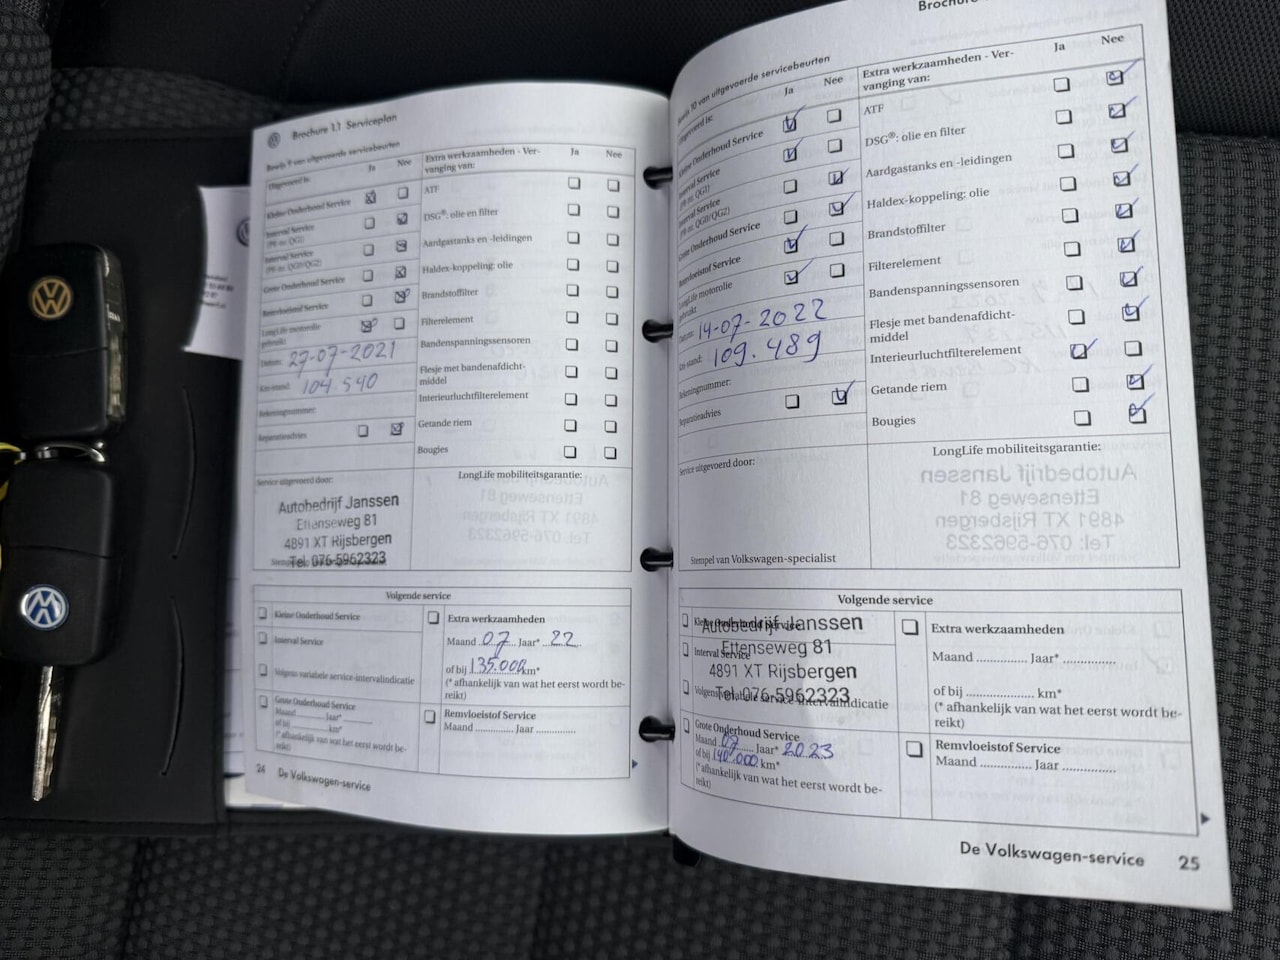 Brochure 1.1 Serviceplan
Bewijs 9 van uitgevoerde servicebeurten
Uitgevoerd is:
Ja
Nee
Kleine Onderhoud Service
Interval Service
(PR-nr. QG1)
Interval Service
(PR-nr. QG0/QG2)
Grote Onderhoud Service
Remvloeistof Service
LongLife motorolie
gebruikt
Datum: 27-07-2021
Km-stand: 104.540
Rekeningnummer:
Reparatieadvies
Extra werkzaamheden - Ver-
vanging van:
Ja
Nee
ATF
DSG®: olie en filter
Aardgastanks en -leidingen
Haldex-koppeling: olie
Brandstoffilter
Filterelement
Bandenspanningssensoren
Flesje met bandenafdicht-
middel
Interieurluchtfilterelement
Getande riem
Bougies
Service uitgevoerd door:
Autobedrijf Janssen
Ettenseweg 81
4891 XT Rijsbergen
Tel. 076-5962323
LongLife mobiliteitsgarantie:
Volgende service
Kleine Onderhoud Service
Interval Service
Volgens variabele service-intervalindicatie
Grote Onderhoud Service
Maand ............ Jaar* ............
of bij ............ km*
(* afhankelijk van wat het eerst wordt be-
reikt)
Extra werkzaamheden
Maand 07 Jaar* 22
of bij 135.000 km*
(* afhankelijk van wat het eerst wordt be-
reikt)
Remvloeistof Service
Maand ............ Jaar ............
24 De Volkswagen-service
Brochure
Bewijs 10 van uitgevoerde servicebeurten
Uitgevoerd is:
Ja
Nee
Kleine Onderhoud Service
Interval Service
(PR-nr. QG1)
Interval Service
(PR-nr. QG0/QG2)
Grote Onderhoud Service
Remvloeistof Service
LongLife motorolie
gebruikt
Datum: 14-07-2022
Km-stand: 109.489
Rekeningnummer:
Reparatieadvies
Extra werkzaamheden - Ver-
vanging van:
Ja
Nee
ATF
DSG®: olie en filter
Aardgastanks en -leidingen
Haldex-koppeling: olie
Brandstoffilter
Filterelement
Bandenspanningssensoren
Flesje met bandenafdicht-
middel
Interieurluchtfilterelement
Getande riem
Bougies
Service uitgevoerd door:
Stempel van Volkswagen-specialist
LongLife mobiliteitsgarantie:
Volgende service
Kleine Onderhoud Service
Autobedrijf Janssen
Ettenseweg 81
Interval Service
4891 XT Rijsbergen
Tel. 076-5962323
Volgens variabele service-intervalindicatie
Grote Onderhoud Service
Maand 07 Jaar* 2023
of bij 140.000 km*
(* afhankelijk van wat het eerst wordt be-
reikt)
Extra werkzaamheden
Maand ............ Jaar* ............
of bij .................. km*
(* afhankelijk van wat het eerst wordt be-
reikt)
Remvloeistof Service
Maand ............ Jaar ............
De Volkswagen-service 25